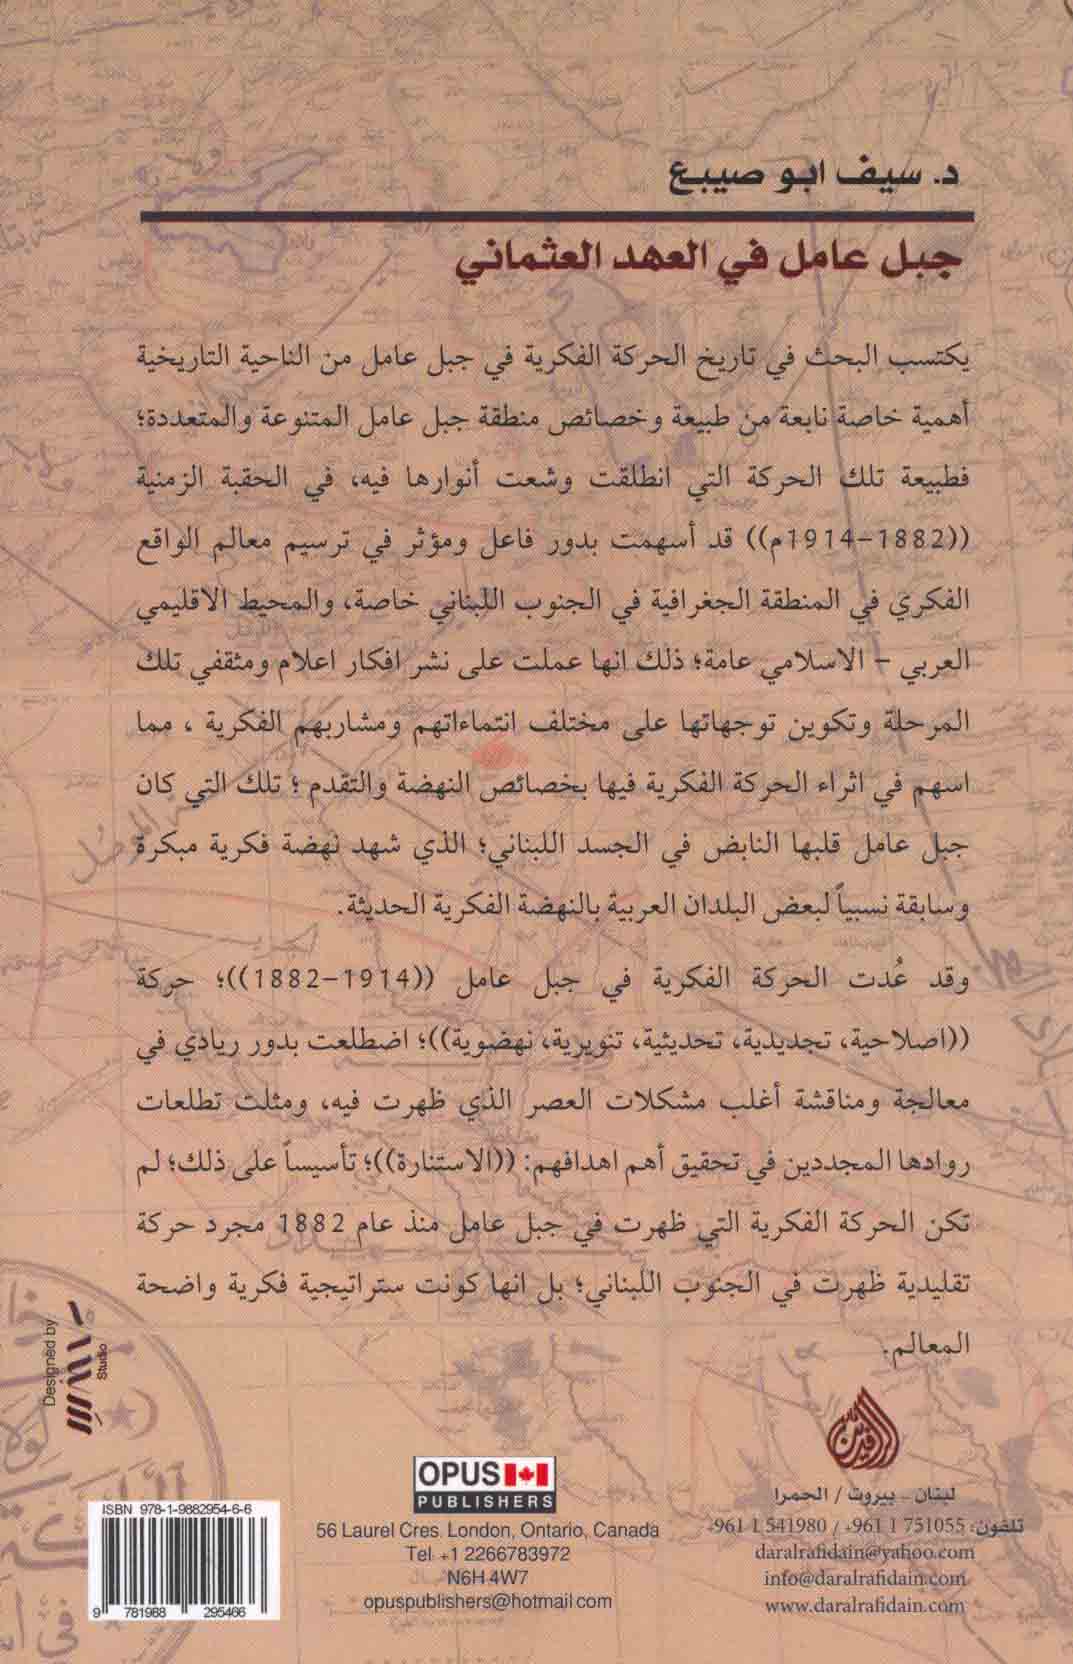 د. سيف ابو صيبع
جبل عامل في العهد العثماني
يكتسب البحث في تاريخ الحركة الفكرية في جبل عامل من الناحية التاريخية
أهمية خاصة نابعة من طبيعة وخصائص منطقة جبل عامل المتنوعة والمتعددة؛
فطبيعة تلك الحركة التي انطلقت وشعت أنوارها فيه، في الحقبة الزمنية
((1882-1914م)) قد أسهمت بدور فاعل ومؤثر في ترسيم معالم الواقع
الفكري في المنطقة الجغرافية في الجنوب اللبناني خاصة، والمحيط الاقليمي
العربي - الاسلامي عامة؛ ذلك انها عملت على نشر افكار اعلام ومثقفي تلك
المرحلة وتكوين توجهاتها على مختلف انتماءاتهم ومشاربهم الفكرية ، مما
اسهم في اثراء الحركة الفكرية فيها بخصائص النهضة والتقدم ؛ تلك التي كان
جبل عامل قلبها النابض في الجسد اللبناني؛ الذي شهد نهضة فكرية مبكرة
وسابقة نسبياً لبعض البلدان العربية بالنهضة الفكرية الحديثة.
وقد عُدت الحركة الفكرية في جبل عامل ((1914-1882))؛ حركة
((اصلاحية، تجديدية، تحديثية، تنويرية، نهضوية))؛ اضطلعت بدور ريادي في
معالجة ومناقشة أغلب مشكلات العصر الذي ظهرت فيه، ومثلت تطلعات
روادها المجددين في تحقيق أهم اهدافهم: ((الاستنارة))؛ تأسيساً على ذلك؛ لم
تكن الحركة الفكرية التي ظهرت في جبل عامل منذ عام 1882 مجرد حركة
تقليدية ظهرت في الجنوب اللبناني؛ بل انها كونت ستراتيجية فكرية واضحة
المعالم.
Designed by
Studio
الرافدين
لبنان - بيروت / الحمرا
تلفون: +961 1 541980 / +961 1 751055
daralrafidain@yahoo.com
info@daralrafidain.com
www.daralrafidain.com
OPUS
PUBLISHERS
56 Laurel Cres. London, Ontario, Canada
Tel +1 2266783972
N6H 4W7
opuspublishers@hotmail.com
ISBN 978-1-9882954-6-6
9 781988 295466